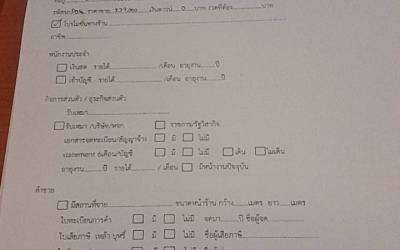 ราคาขาย 829,000 เงินดาวน์ 0 บาท / เวลาที่ต้อง บาท
☑ โปรโมชั่นทางร้าน
อาชีพ
พนักงานประจำ
☐ เงินสด รายได้ /เดือน อายุงาน ปี
☐ เข้าบัญชี รายได้ /เดือน อายุงาน ปี
กิจการส่วนตัว / ธุรกิจส่วนตัว
รับเหมา
☐ รับเหมา/บริษัท/หจก ☐ ราชการ/รัฐวิสาหกิจ
เอกสารจดทะเบียน/สัญญาจ้าง ☐ มี ☐ ไม่มี
statement 6เดือน/บัญชี ☐ มี ☐ ไม่มี ☐ เดิน ☐ ไม่เดิน
อายุงาน ปี รายได้ / เดือน ☐ มีหน้างานปัจจุบัน
ค้าขาย
☐ มีสถานที่ขาย ขนาดหน้าร้าน กว้าง เมตร ยาว เมตร
ใบทะเบียนการค้า ☐ มี ☐ ไม่มี จดมา ปี ชื่อผู้จด
ใบเสียภาษี เหล้า บุหรี่ ☐ มี ☐ ไม่มี ชื่อผู้เสียภาษี